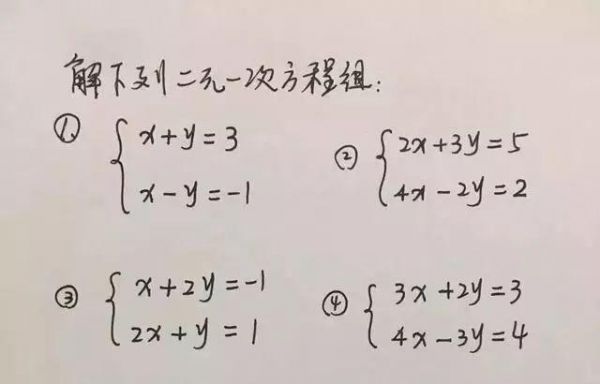 解下列二元一次方程组:
① { x+y=3
x-y=-1
② { 2x+3y=5
4x-2y=2
③ { x+2y=-1
2x+y=1
④ { 3x+2y=3
4x-3y=4